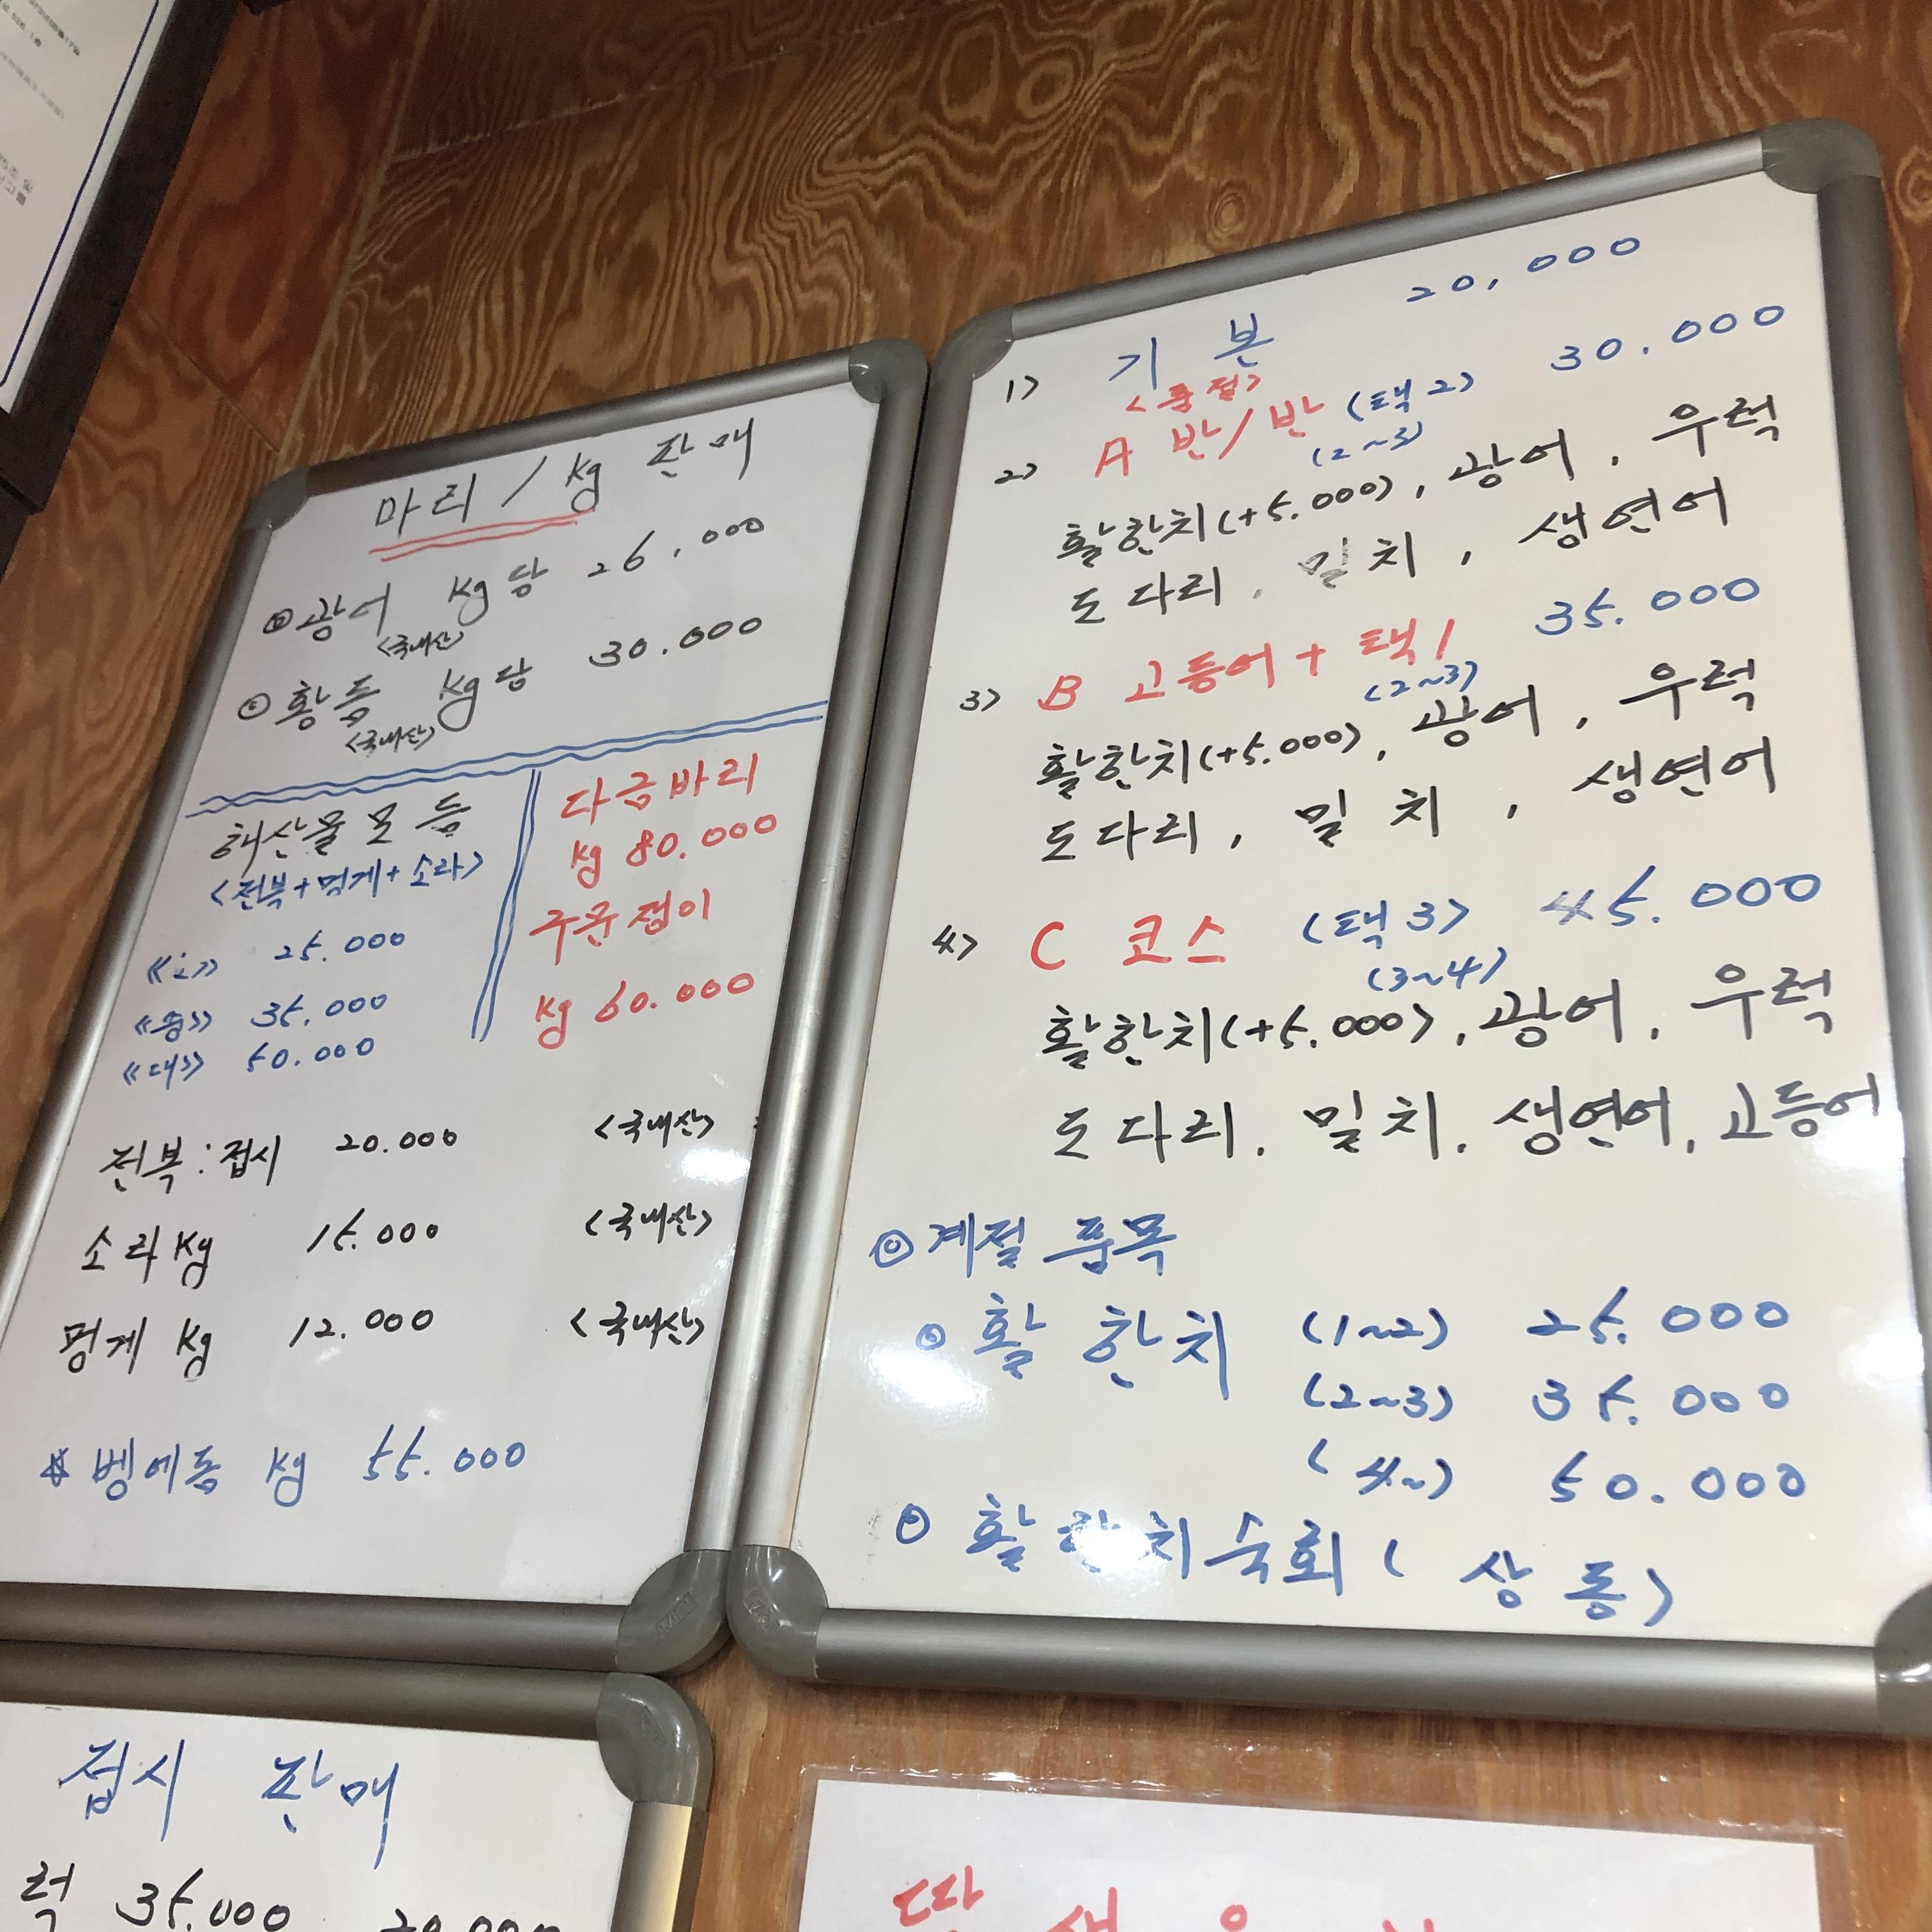 마리 / kg 판매
◎ 광어 kg당 26,000
<국내산>
◎ 황돔 kg당 30.000
<국내산>
해산물모듬
<전복+멍게+소라>
《소》 25.000
《중》 35.000
《대》 50.000
다금바리
kg 80.000
구문접이
kg 60.000
전복:접시 20.000 <국내산>
소라 kg 15.000 <국내산>
멍게 kg 12.000 <국내산>
벵에돔 kg 55.000
1) 기본 20,000
<품절>
2) A 반/반 (택2) 30.000
(2~3)
활한치(+5.000), 광어, 우럭
도다리, 밀치, 생연어
3) B 고등어 + 택1 35.000
(2~3)
활한치(+5.000), 광어, 우럭
도다리, 밀치, 생연어
4) C 코스 (택3) 45.000
(3~4)
활한치(+5.000), 광어, 우럭
도다리. 밀치. 생연어, 고등어
◎ 계절 품목
◎ 활한치 (1~2) 25.000
(2~3) 35.000
(4~) 50.000
◎ 활한치숙회 (상동)
접시 판매
럭 35.000